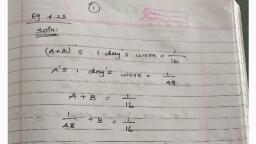 ①
Eg 4.23
Soln:
(A+B)'s 1 day's work = 1/16
A's 1 day's work = 1/48
A + B = 1/16
1/48 + B = 1/16